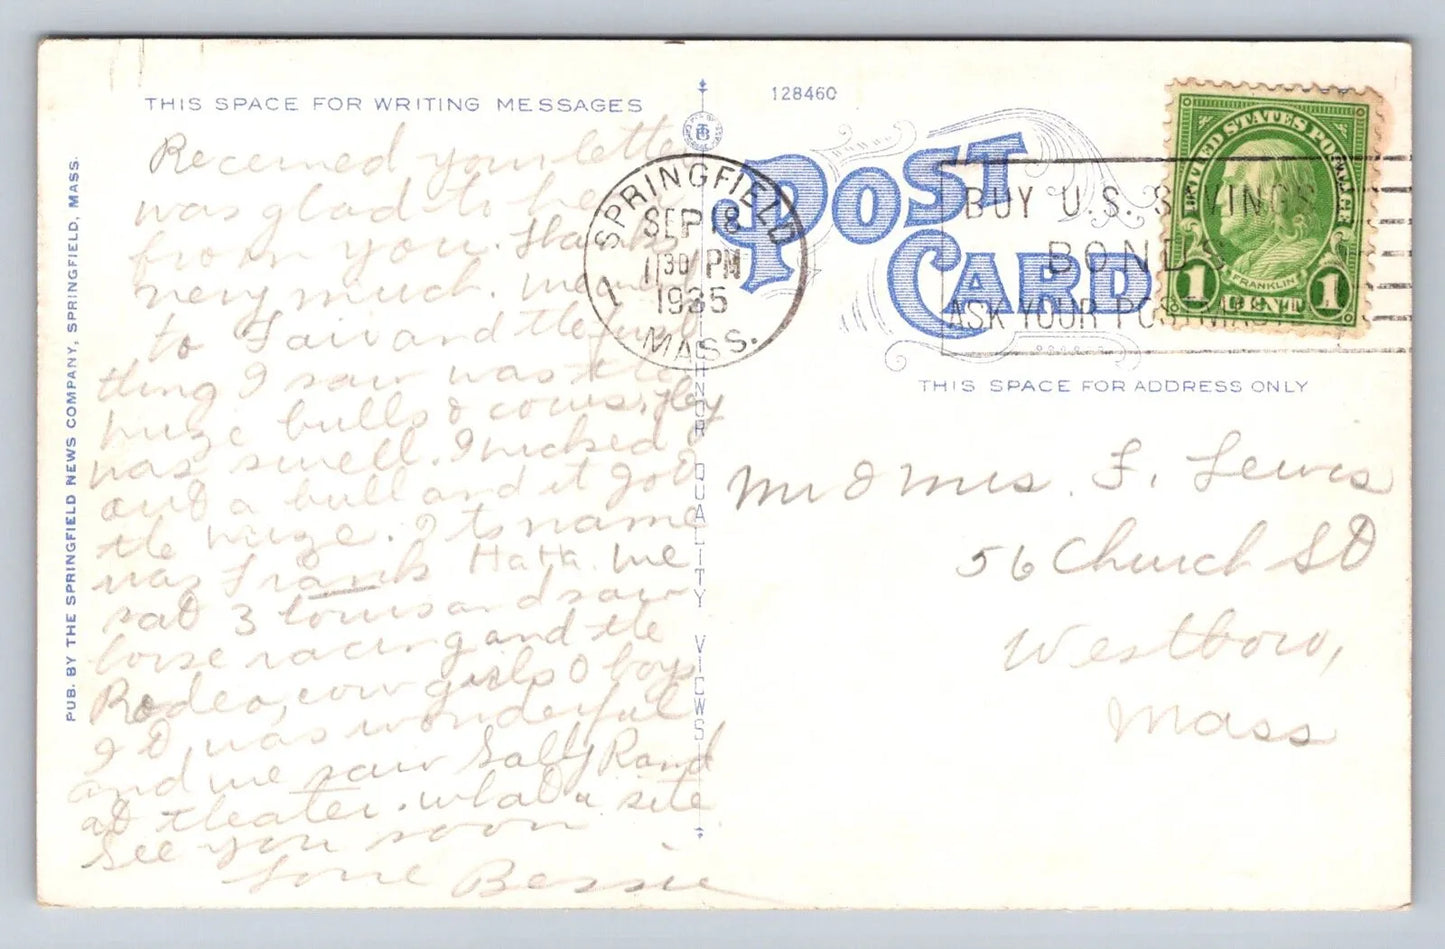 THIS SPACE FOR WRITING MESSAGES
Received your letter
was glad to hear
from you. Thanks
very much. We went
to Fair and the first
thing I saw was the
huge bulls & cows, they
was swell. I picked
out a bull and it got
the prize. Its name
was Frank Hatta. We
sat 3 hours and saw
horse racing and the
Rodeo, cow girls & boys
It was wonderful
and we saw Sally Rand
at theater. What a site
See you soon
Love Bessie
PUB. BY THE SPRINGFIELD NEWS COMPANY, SPRINGFIELD, MASS.
QUALITY VIEWS
128460
POST CARD
SPRINGFIELD
SEP 18
11 30 PM
1935
MASS.
1
BUY U.S. SAVINGS
BONDS
ASK YOUR POSTMASTER
UNITED STATES POSTAGE
FRANKLIN
1 CENT 1
THIS SPACE FOR ADDRESS ONLY
Mr & Mrs. F. Lewis
56 Church St
Westboro,
Mass